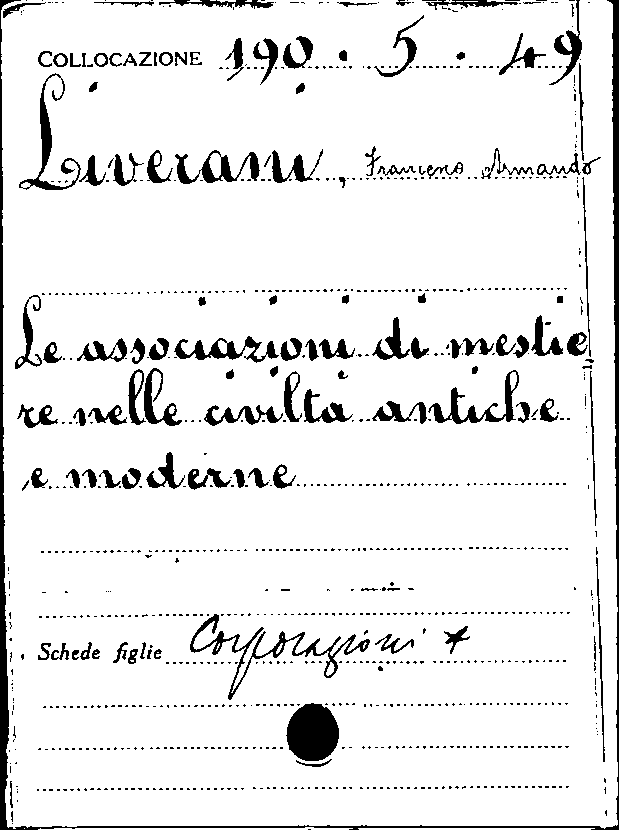 COLLOCAZIONE 190 . 5 . 49
Liverani, Francesco Armando
Le associazioni di mestie
re nelle civiltà antiche
e moderne
Schede figlie Corporazioni *